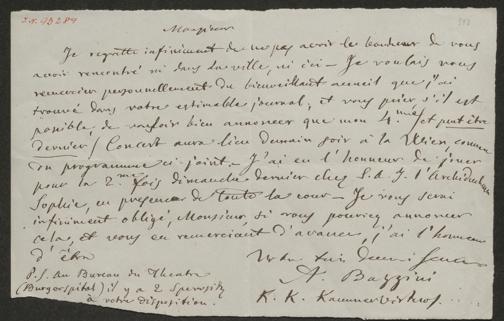 I.N. 93289
Monsieur
Je regrette infiniment de ne pas avoir le bonheur de vous
avoir rencontré ni dans la ville, ni ici – Je voulais vous
remercier personnellement du bienveillant accueil que j'ai
trouvé dans votre estimable journal, et vous prier, s'il est
possible, de vouloir bien annoncer que mon 4me (et peut être
dernier) Concert aura lieu demain soir à la Wien, comme
programme ci joint – J'ai eu l'honneur de jouer
pour la 2me fois dimanche dernier chez S.A.I. l'Archiduchesse
Sophie, en presence de toute la cour – Je vous serai
infiniment obligé, Monsieur, si vous pouviez annoncer
cela, et vous en remerciant d'avance, j'ai l'honneur
d'être
Votre
A. Bazzini
K. K. Kammervirtuos
P.S. Au Bureau du Theatre
(Burgerspital) il y a 2 Spersitz
à votre disposition.